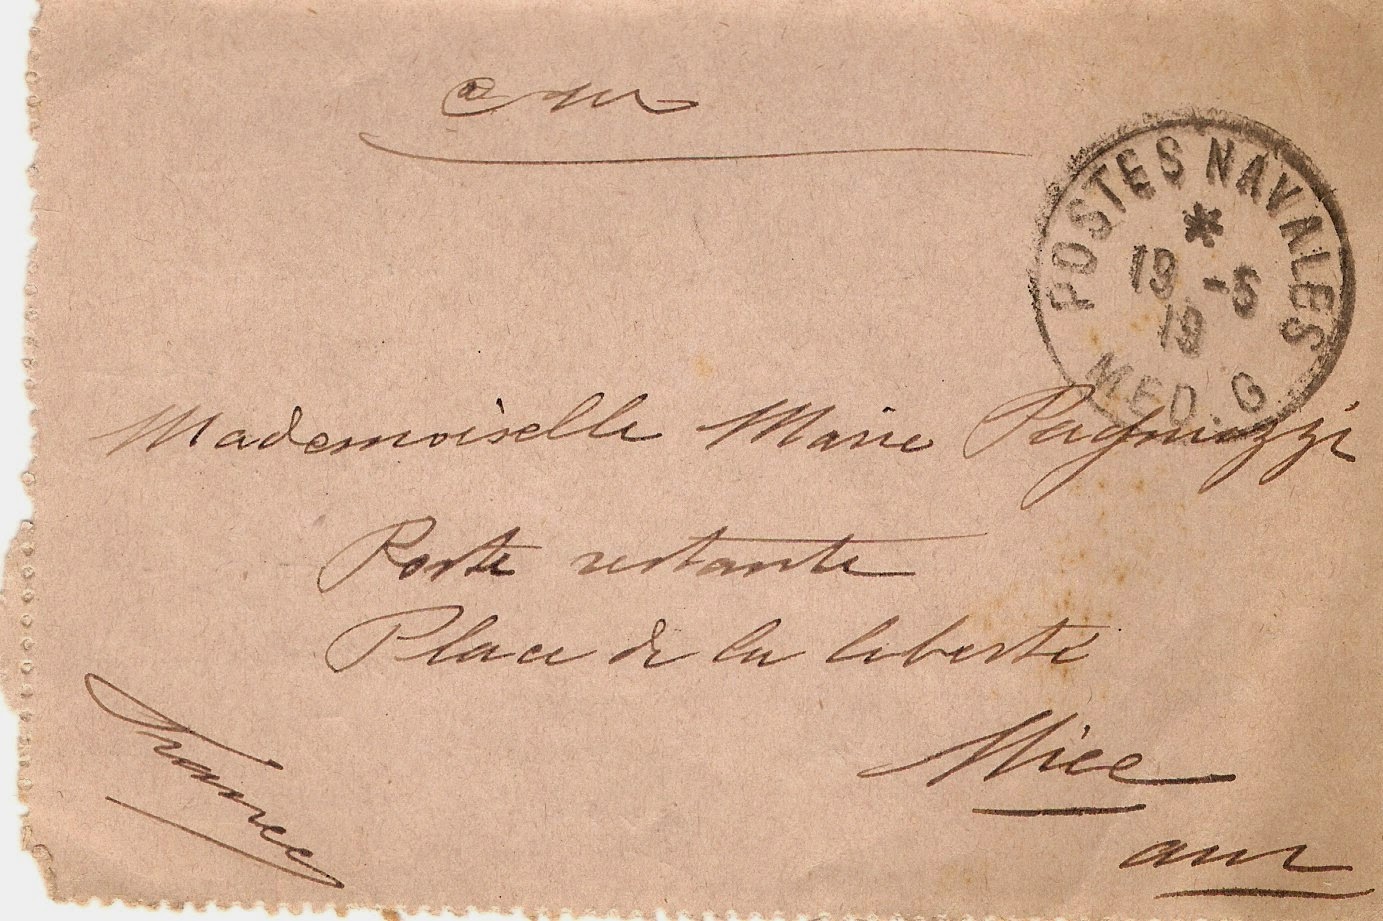 POSTES NAVALES
*
19 -5
19
MED. G
Mademoiselle Marie Pagnuzzi
Poste restante
Place de la liberté
Nice
France